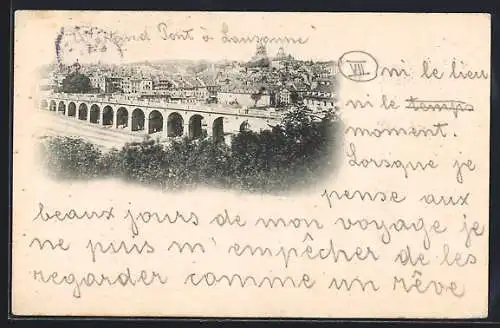 Grand Pont à Lausanne
VII.
ni le lieu
ni le temps
moment.
Lorsque je
pense aux
beaux jours de mon voyage je
ne puis m'empêcher de les
regarder comme un rêve